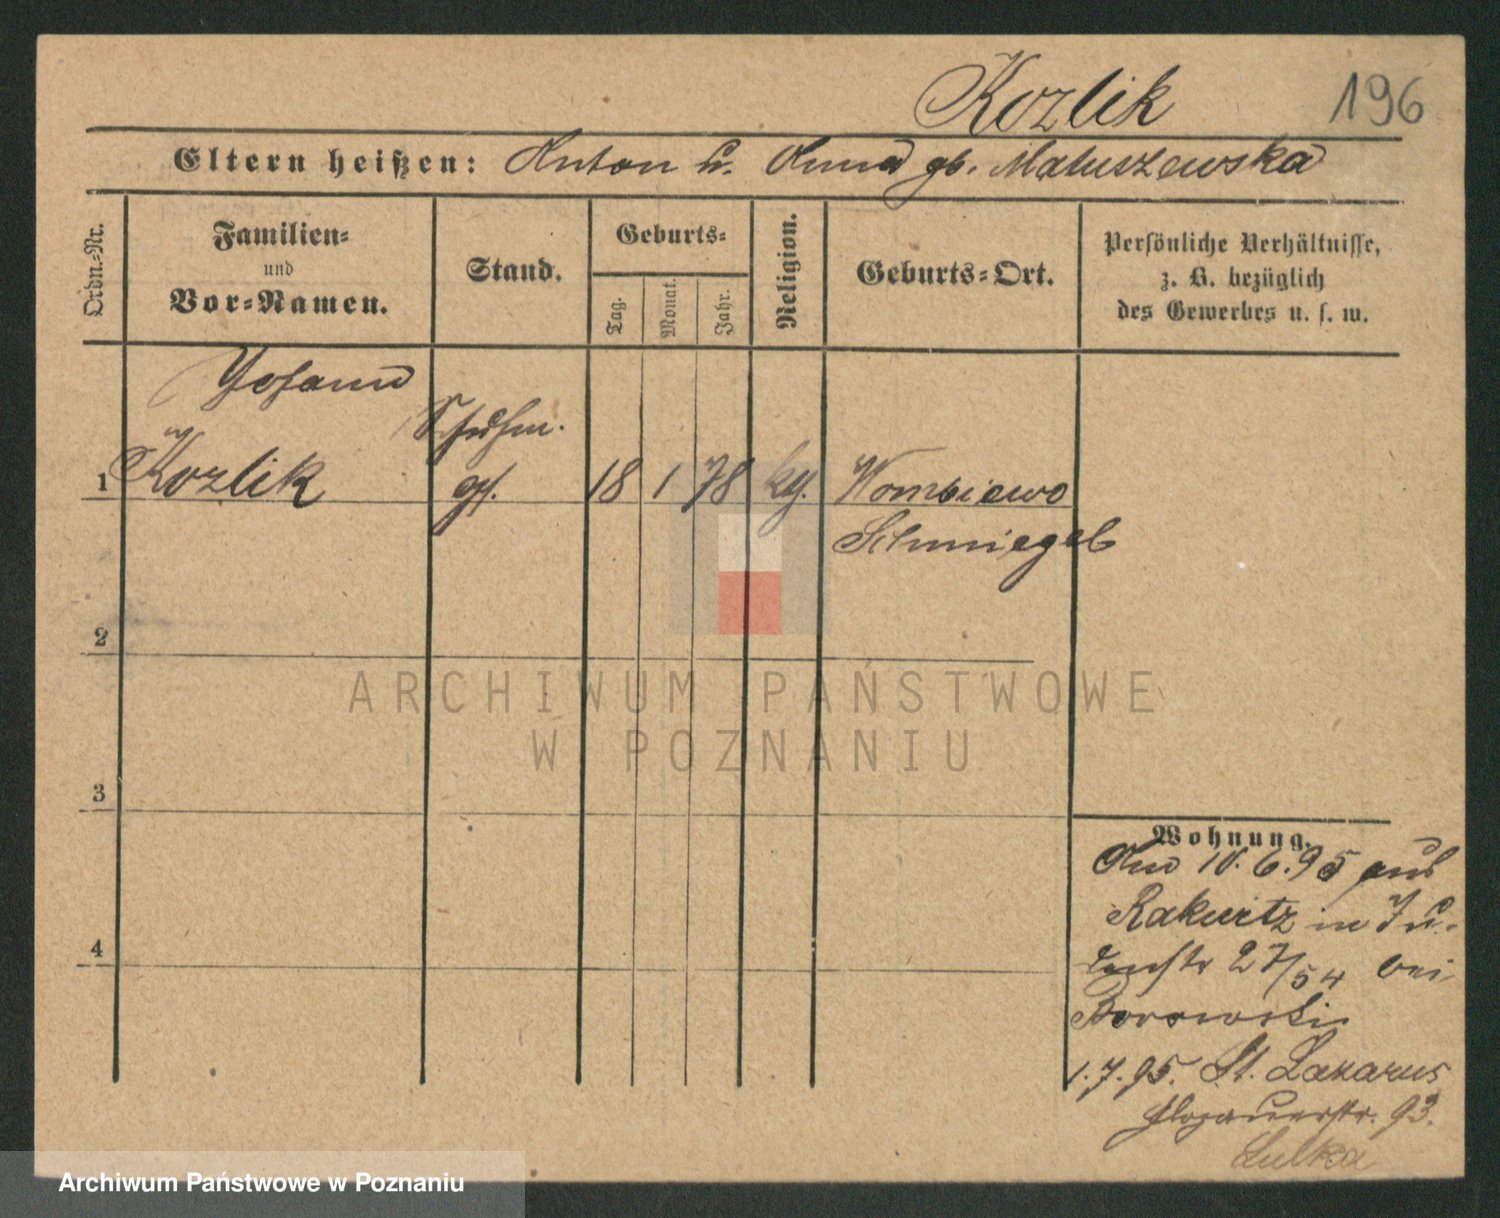 Kozlik 196
Eltern heißen: Anton u. Anna gb. Matuszewska
Ordn.-Nr.
Familien-
und
Vor-Namen.
Stand.
Geburts-
Tag.
Monat.
Jahr.
Religion.
Geburts-Ort.
Persönliche Verhältnisse,
z. B. bezüglich
des Gewerbes u. s. w.
Johann
Schuhm.
1 Kozlik gs. 18 1 78 kg. Wombiewo
Schmiegel
2
3
4
Wohnung.
Am 10.6.95 aus
Rakwitz in Ju-
denstr 27/54 bei
Borowski
1.7.95. St. Lazarus
Glogauerstr. 93.
Lulka
ARCHIWUM PAŃSTWOWE
W POZNANIU
Archiwum Państwowe w Poznaniu